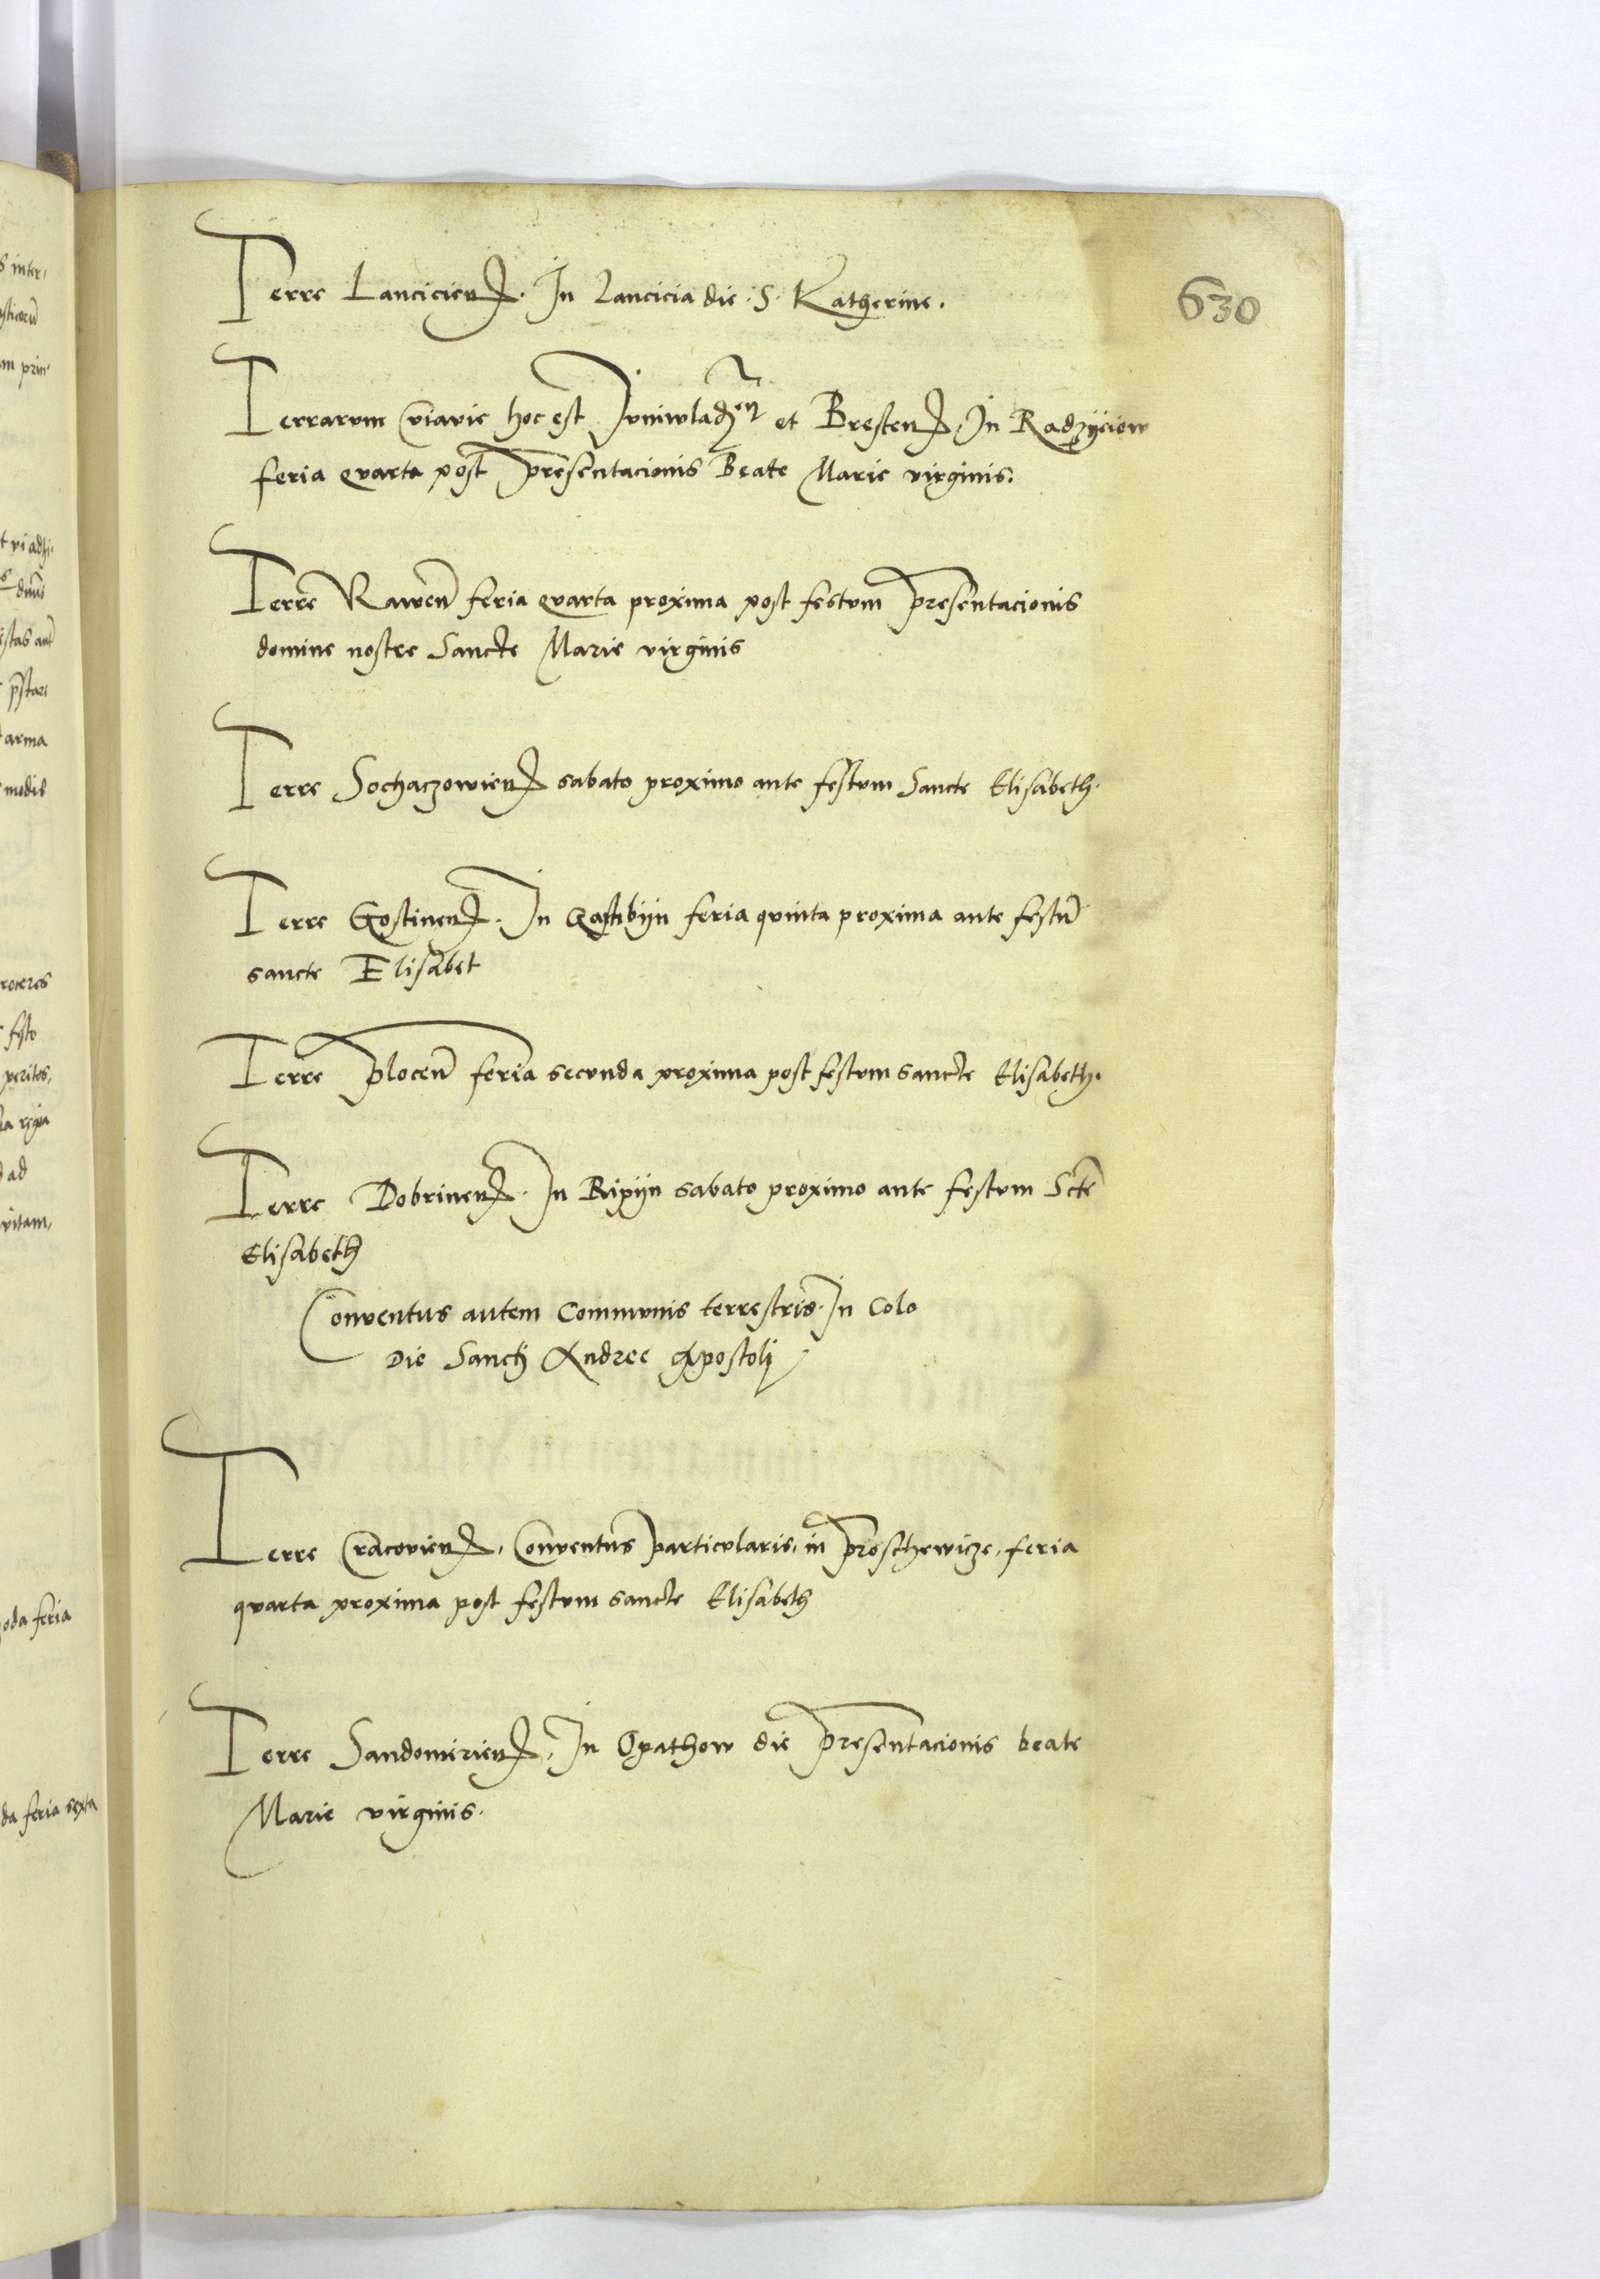 630
Terre Lancicien. In Lancicia die S. Katherine.
Terrarum Cuiavie hoc est Juniwladen et Bresten, In Radzyeiow
feria quarta post presentacionis Beate Marie virginis.
Terre Rawen feria quarta proxima post festum presentacionis
domine nostre Sancte Marie virginis
Terre Sochaczowien sabato proximo ante festum Sancte Elisabeth.
Terre Gostinen. In feria quinta proxima ante festum
sancte Elisabet
Terre plocen feria secunda proxima post festum sancte Elisabeth.
Terre Dobrinen. In Ripyn sabato proximo ante festum Scte
Elisabeth
Conventus autem Communis terrestris. In Colo
Die Sancti Andree Apostoli
Terre Cracovien, Conventus particularis, in proschewicze, feria
quarta proxima post festum sancte Elisabeth
Terre Sandomirien, In Opathow die presentacionis beate
Marie virginis.